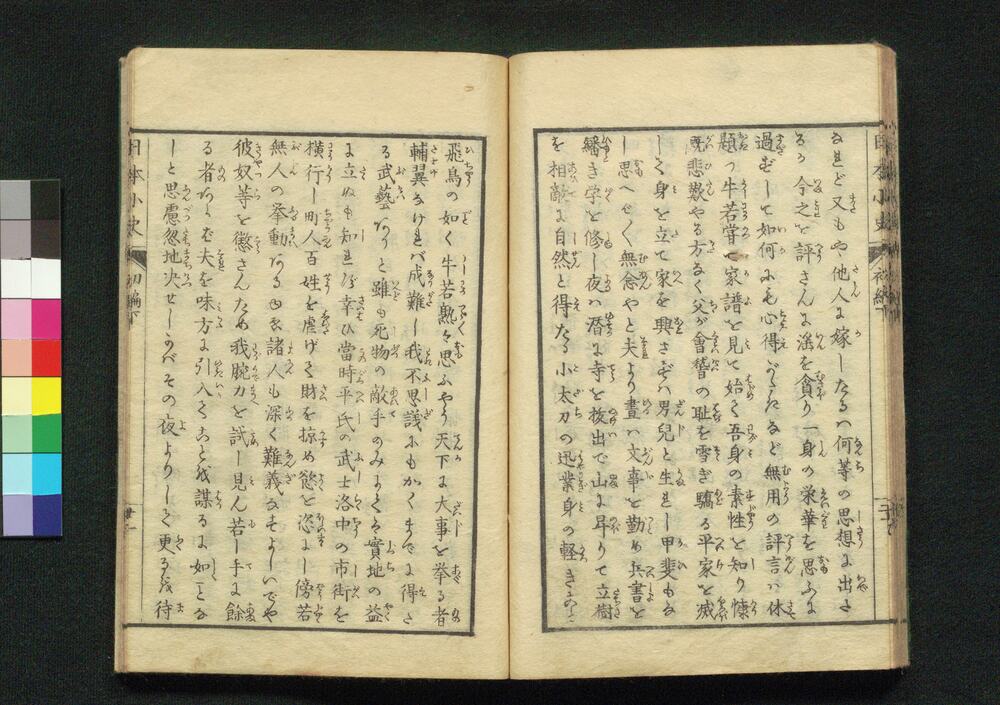 なれど又もや他人に嫁したるハ何等の思想に出さ
るか今之を評さんに滛を貪り一身の栄華を思ふに
過ずして如何にも心得がたしなど無用の評言ハ休
題つ牛若嘗て家譜を見て始めて吾身の素性を知り慷
慨悲歎やる方なく父が會稽の耻を雪ぎ驕る平家を滅
し身を立て家を興さずバ男兒と生れし甲斐もな
し思へバ無念やと夫より晝ハ文事を勤め兵書を
繙き学を修し夜ハ潛に寺を抜出で山に耳りて立樹
を相敵に自然と得たる小太刀の迅業身の軽きこと
飛鳥の如く牛若熟々思ふやう天下に大事を挙る者
輔翼なけれバ成難し我不思議にもかくまでに得た
る武藝ありと雖も死物の敵手のみにてハ實地の益
に立ぬも知れず幸ひ當時平氏の武士洛中の市街を
横行し町人百姓を虐げて財を掠め慾を恣にし傍若
無人の挙動あるゆゑ諸人も深く難義なすよしいでや
彼奴等を懲さんため我腕力を試し見ん若し手に餘
る者あらバ夫を味方に引入ることを謀るに如とな
しと思慮忽地决せしかバその夜よりして更るを待
日本小史
初編下